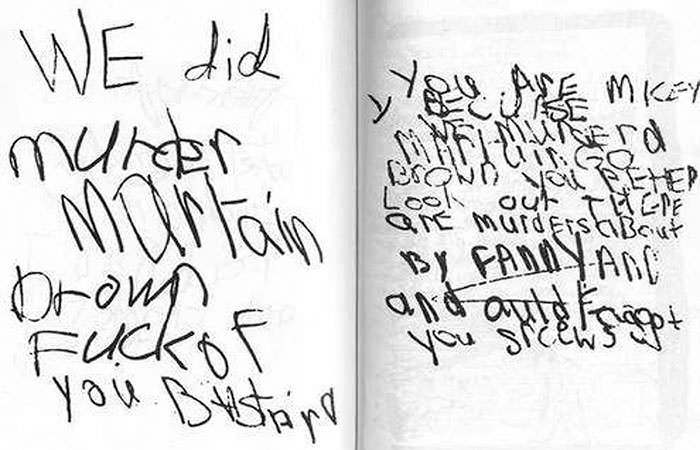 WE did
murder
martain
brown
Fuckof
you BAstArd
you ArE micey
y BECuSE
WE murdErd
MArtain GO
Brown you BEtEr
Look out THErE
arE murdErs aBout
By FANNY AND
and auld Faggot
you srcews